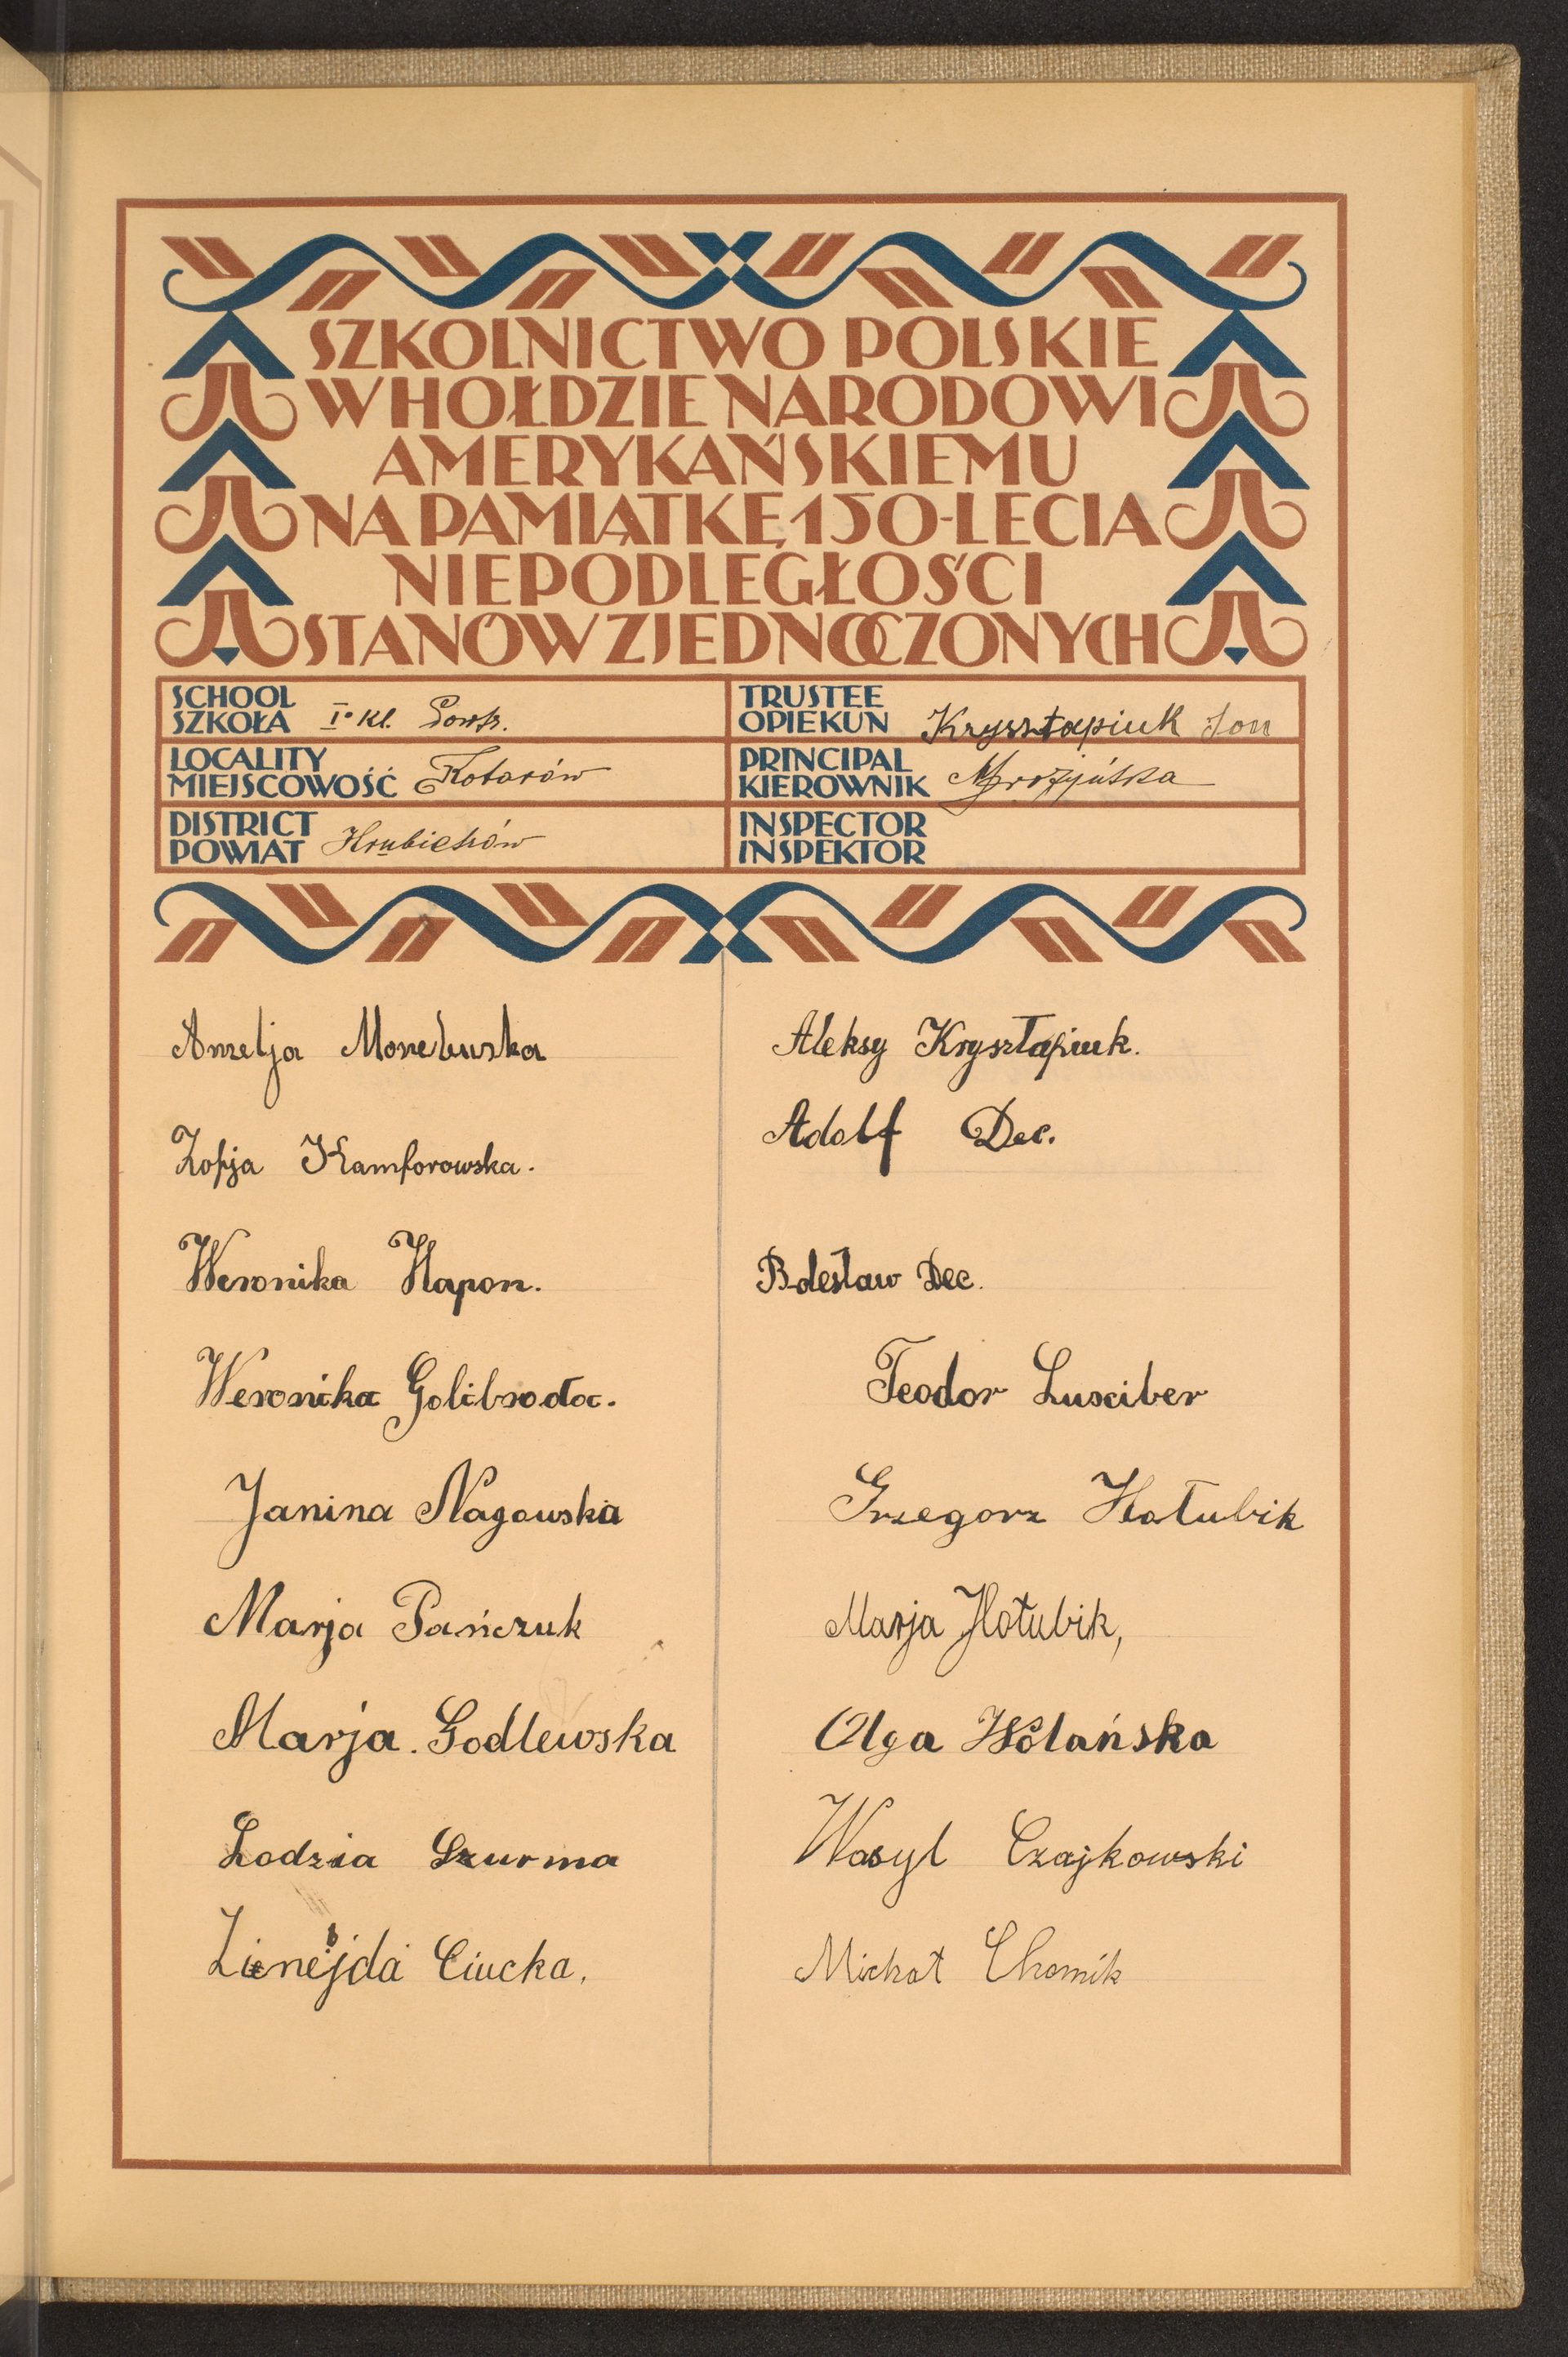 SZKOLNICTWO POLSKIE
W HOŁDZIE NARODOWI
AMERYKAŃSKIEMU
NA PAMIĄTKĘ 150-LECIA
NIEPODLEGŁOŚCI
STANÓW ZJEDNOCZONYCH
SCHOOL
SZKOŁA I-o Kl. Powsz.
LOCALITY
MIEJSCOWOŚĆ Kotorów
DISTRICT
POWIAT Hrubieszów
TRUSTEE
OPIEKUN Kryształpiuk Jan
PRINCIPAL
KIEROWNIK Mrożyńska
INSPECTOR
INSPEKTOR
Amelja
Zofja Kamforowska.
Weronika Hapon.
Weronika Golibroda.
Janina Nagowska
Marja Pańczuk
Marja. Godlewska
Lodzia Szurma
Zienejda Ciucka.
Aleksy Kryształpiuk.
Adolf Dec.
Bolesław Dec.
Teodor Lusciber
Grzegorz Hołubik
Marja Hołubik,
Olga Wolańska
Wasyl Czajkowski
Michał Chomik